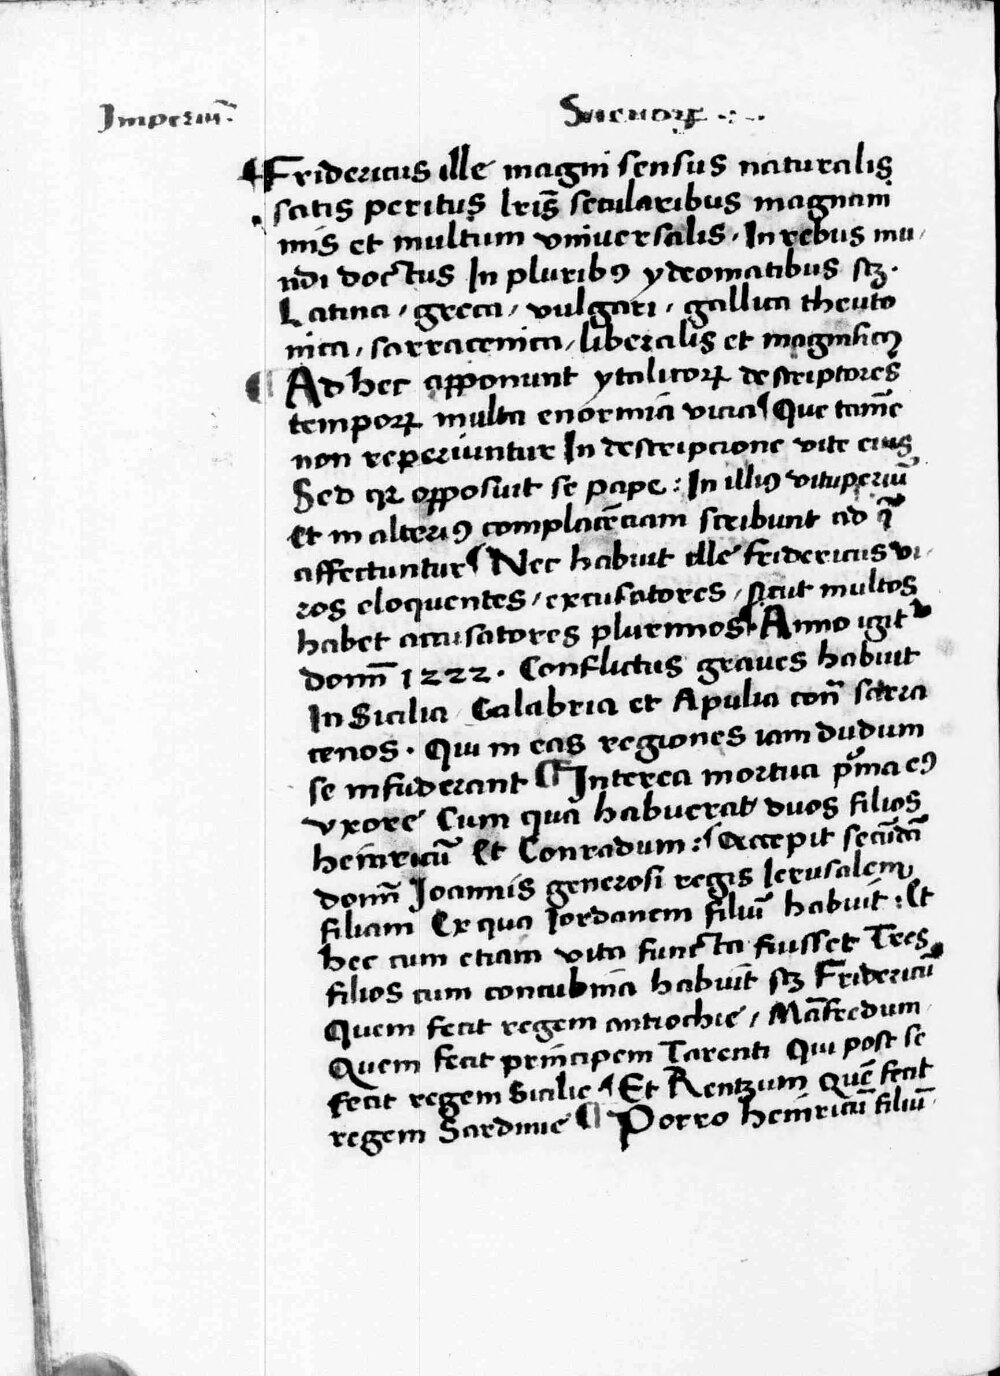 Imperiū.
Sueuoꝝ
¶Fridericus ille magni sensus naturalis
satis peritus lrīs secularibus magnani
mis et multum vniuersalis. In rebus mu
ndi doctus In pluribꝰ ydeomatibus scꝫ.
Latina, greca, vulgari, gallica theuto
nica, sarracenica, liberalis et magnificꝰ
¶ Ad hec apponunt ytalicoꝝ descriptores
tempoꝝ multa enormia vicia ¶ Que tamē
non reperiuntur In descripcione vite eius
Sed qꝛ opposuit se pape: In illiꝰ vituperiū
Et in alteriꝰ complacēciam scribunt ad q̄
affectuntur ¶ Nec habuit ille fridericus vi
ros eloquentes, excusatores, sicut multos
habet accusatores plurimos ¶ Anno igit̄
domī 1222. Conflictus graues habuit
In Sicilia Calabria et Apulia con̄ sarra
cenos. Qui in eas regiones iam dudum
se infuderant ¶ Interea mortua pͥma eꝰ
vxore Cum qua habuerat duos filios
heinricū Et Conradum: ¶ Accepit secūdā
domī Joannis generosi regis Jerusalem
filiam Ex qua Jordanem filiū habuit: Et
hec cum etiam vita functa fuisset Tres
filios cum concubina habuit scꝫ Fridericū
Quem fecit regem antiochie, Māfredum
Quem fecit principem Tarenti Qui post se
fecit regem Sicilie ¶ Et Rentzum quē fecit
regem Sardinie ¶ Porro heinricū filiū